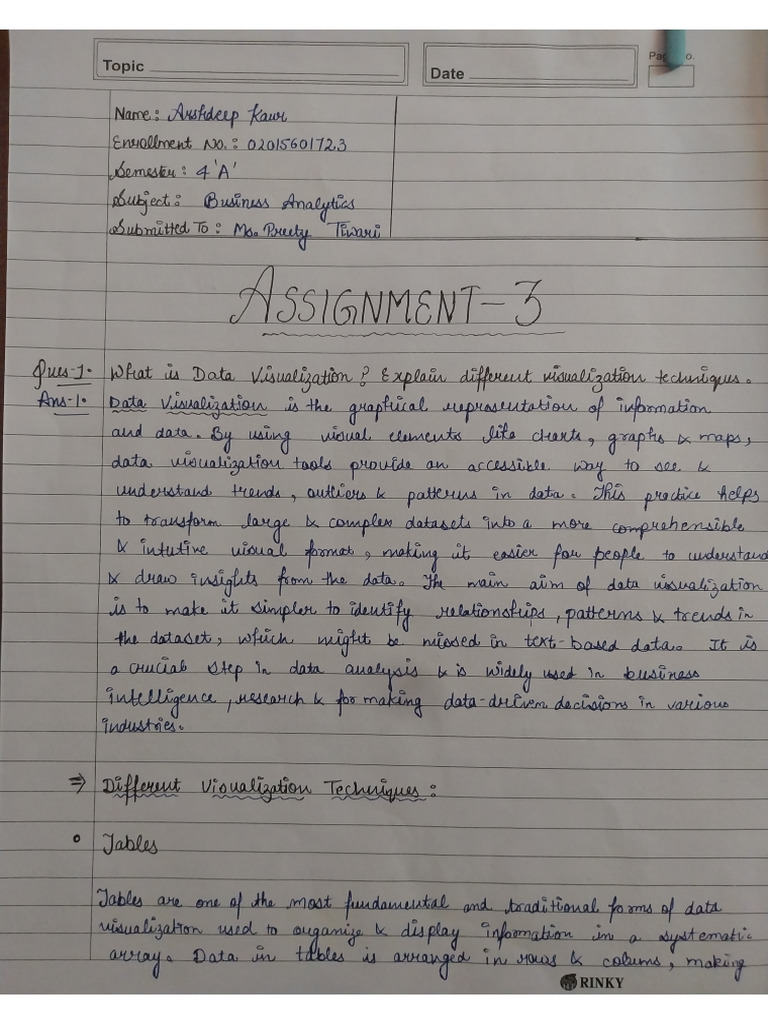 Topic
Date
Pag o.
Name: Arshdeep Kaur
Enrollment No.: 02015601723
Semester: 4 'A'
Subject: Business Analytics
Submitted To: Ms. Preety Tiwari
ASSIGNMENT-3
Ques-1. What is Data Visualization? Explain different visualization techniques.
Ans-1. Data Visualization is the graphical representation of information
and data. By using visual elements like charts, graphs & maps,
data visualization tools provide an accessible way to see &
understand trends, outliers & patterns in data. This practice helps
to transform large & complex datasets into a more comprehensible
& intutive visual format, making it easier for people to understand
& draw insights from the data. The main aim of data visualization
is to make it simpler to identify relationships, patterns & trends in
the dataset, which might be missed in text-based data. It is
a crucial step in data analysis & is widely used in business
intelligence, research & for making data-driven decisions in various
industries.
⇒ Different Visualization Techniques:
• Tables
Tables are one of the most fundamental and traditional forms of data
visualization used to organize & display information in a systematic
array. Data in tables is arranged in rows & colums, making
RINKY